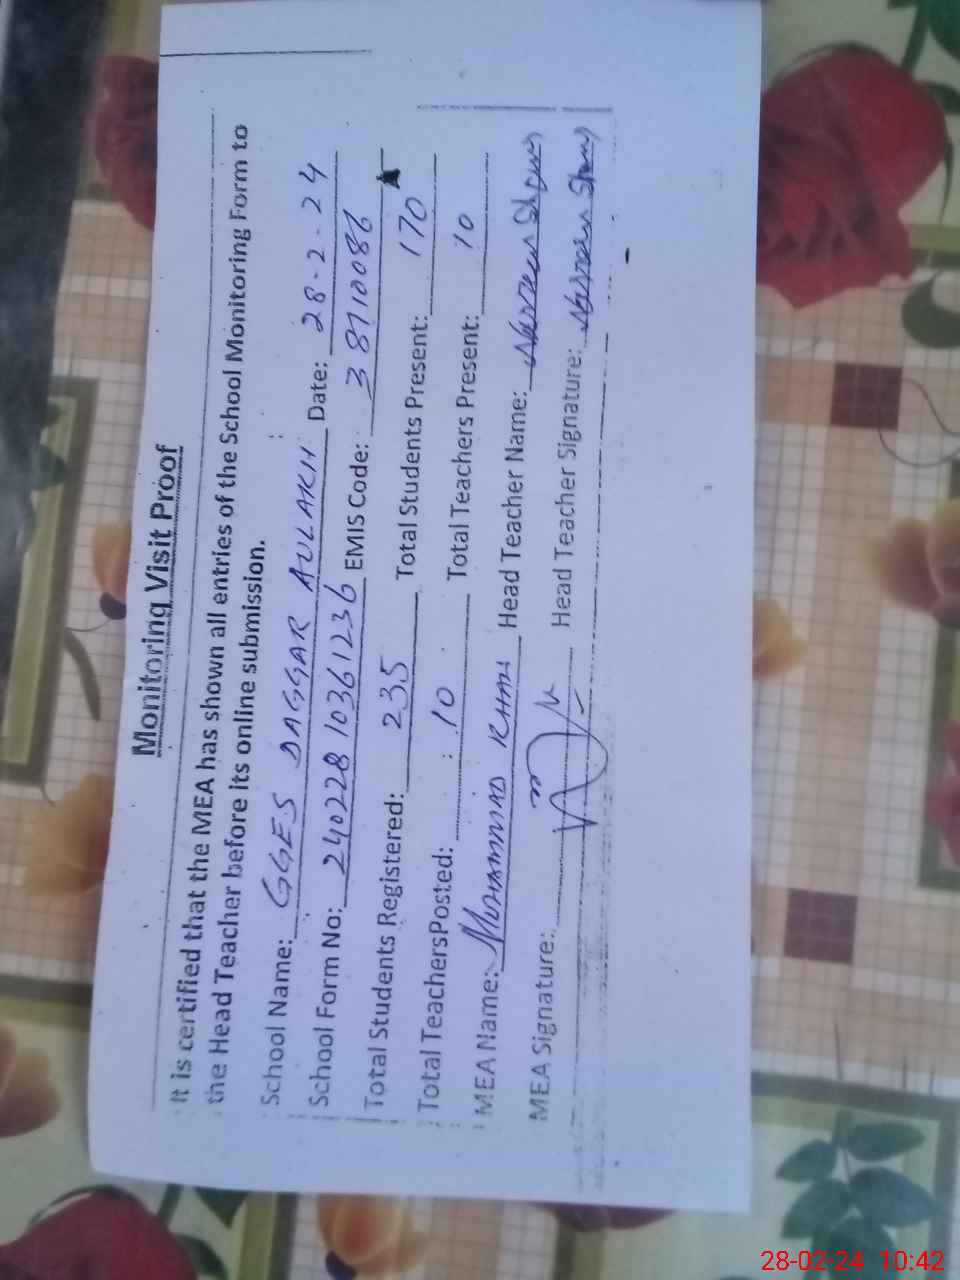 Monitoring Visit Proof
It is certified that the MEA has shown all entries of the School Monitoring Form to
the Head Teacher before its online submission.
School Name: GGES DAGGAR AULAKH Date: 28-2-24
School Form No: 24022810361236 EMIS Code: 3810086
Total Students Registered: 235 Total Students Present: 170
Total TeachersPosted: 10 Total Teachers Present: 10
MEA Name: MUHAMMAD Head Teacher Name:
MEA Signature: Head Teacher Signature:
28-02-24 10:42